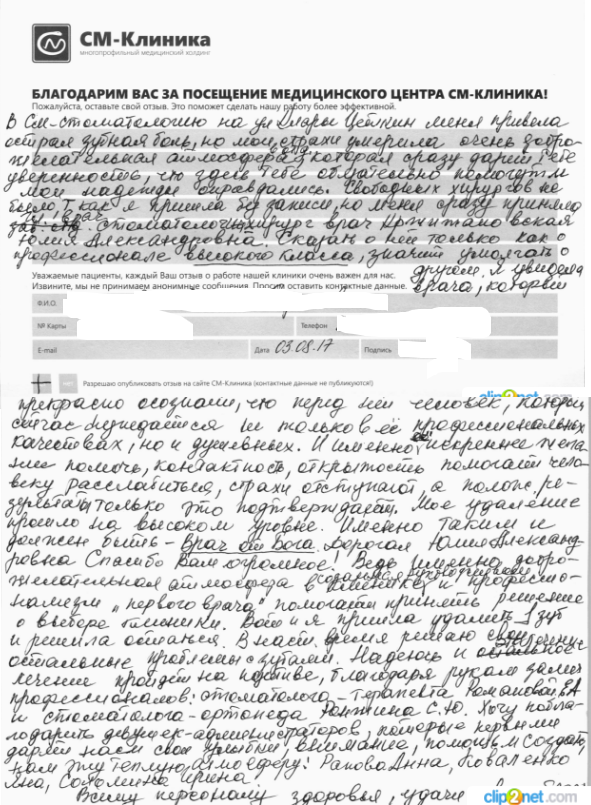 СМ-Клиника
многопрофильный медицинский холдинг
БЛАГОДАРИМ ВАС ЗА ПОСЕЩЕНИЕ МЕДИЦИНСКОГО ЦЕНТРА СМ-КЛИНИКА!
Пожалуйста, оставьте свой отзыв. Это поможет сделать нашу работу более эффективной.
В СМ-стоматологию на ул Клары Цеткин меня привела
острая зубная боль, но мои страхи умерила очень добро-
желательная атмосфера, которая сразу дарит тебе
уверенность, что здесь тебе обязательно помогут и
мои надежды оправдались. Свободных хирургов не
было, т.как я пришла без записи, но меня сразу приняла
стоматолог хирург врач Кржижановская
Юлия Александровна. Сказать о ней только как о
профессионале высокого класса, значит умолчать о
Уважаемые пациенты, каждый Ваш отзыв о работе нашей клиники очень важен для нас.
другом. Я увидела
Извините, мы не принимаем анонимные сообщения. Просим оставить контактные данные.
врача, который
Ф.И.О.
№ Карты Телефон
E-mail Дата 03.08.17 Подпись
Разрешаю опубликовать отзыв на сайте СМ-Клиника (контактные данные не публикуются!)
clip2net.com
прекрасно осознаёт, что перед ней человек, который
сейчас нуждается не только в её профессиональных
качествах, но и душевных. И именно искреннее жела-
ние помочь, контактность, открытость помогает чело-
веку расслабиться, страхи отступают, а полож. ре-
зультат только это подтверждает. Мое удаление
прошло на высоком уровне. Именно таким и
должен быть - врач от Бога. Дорогая Юлия Александ-
ровна Спасибо Вам огромное! Ведь именно добро-
желательная атмосфера в клинике, созданная и профессио-
нализм "первого врача" помогают принять решение
о выборе клиники. Вот и я пришла удалить 1 зуб
и решила остаться. В наст. время решаю свои
остальные проблемы с зубами. Надеюсь и
лечение пройдёт на позитиве, благодаря рукам замеч
профессионалов: стоматолога-терапевта Романовой
и стоматолога-ортопеда С.Ю. Хочу побла-
годарить девушек-администраторов, которые первыми
дарят нам свои улыбки, внимание, помощь и создают
нам эту теплую атмосферу: Ракова Анна, Коваленко
Яна, Соломина Ирина.
Всему персоналу здоровья, удачи
clip2net.com